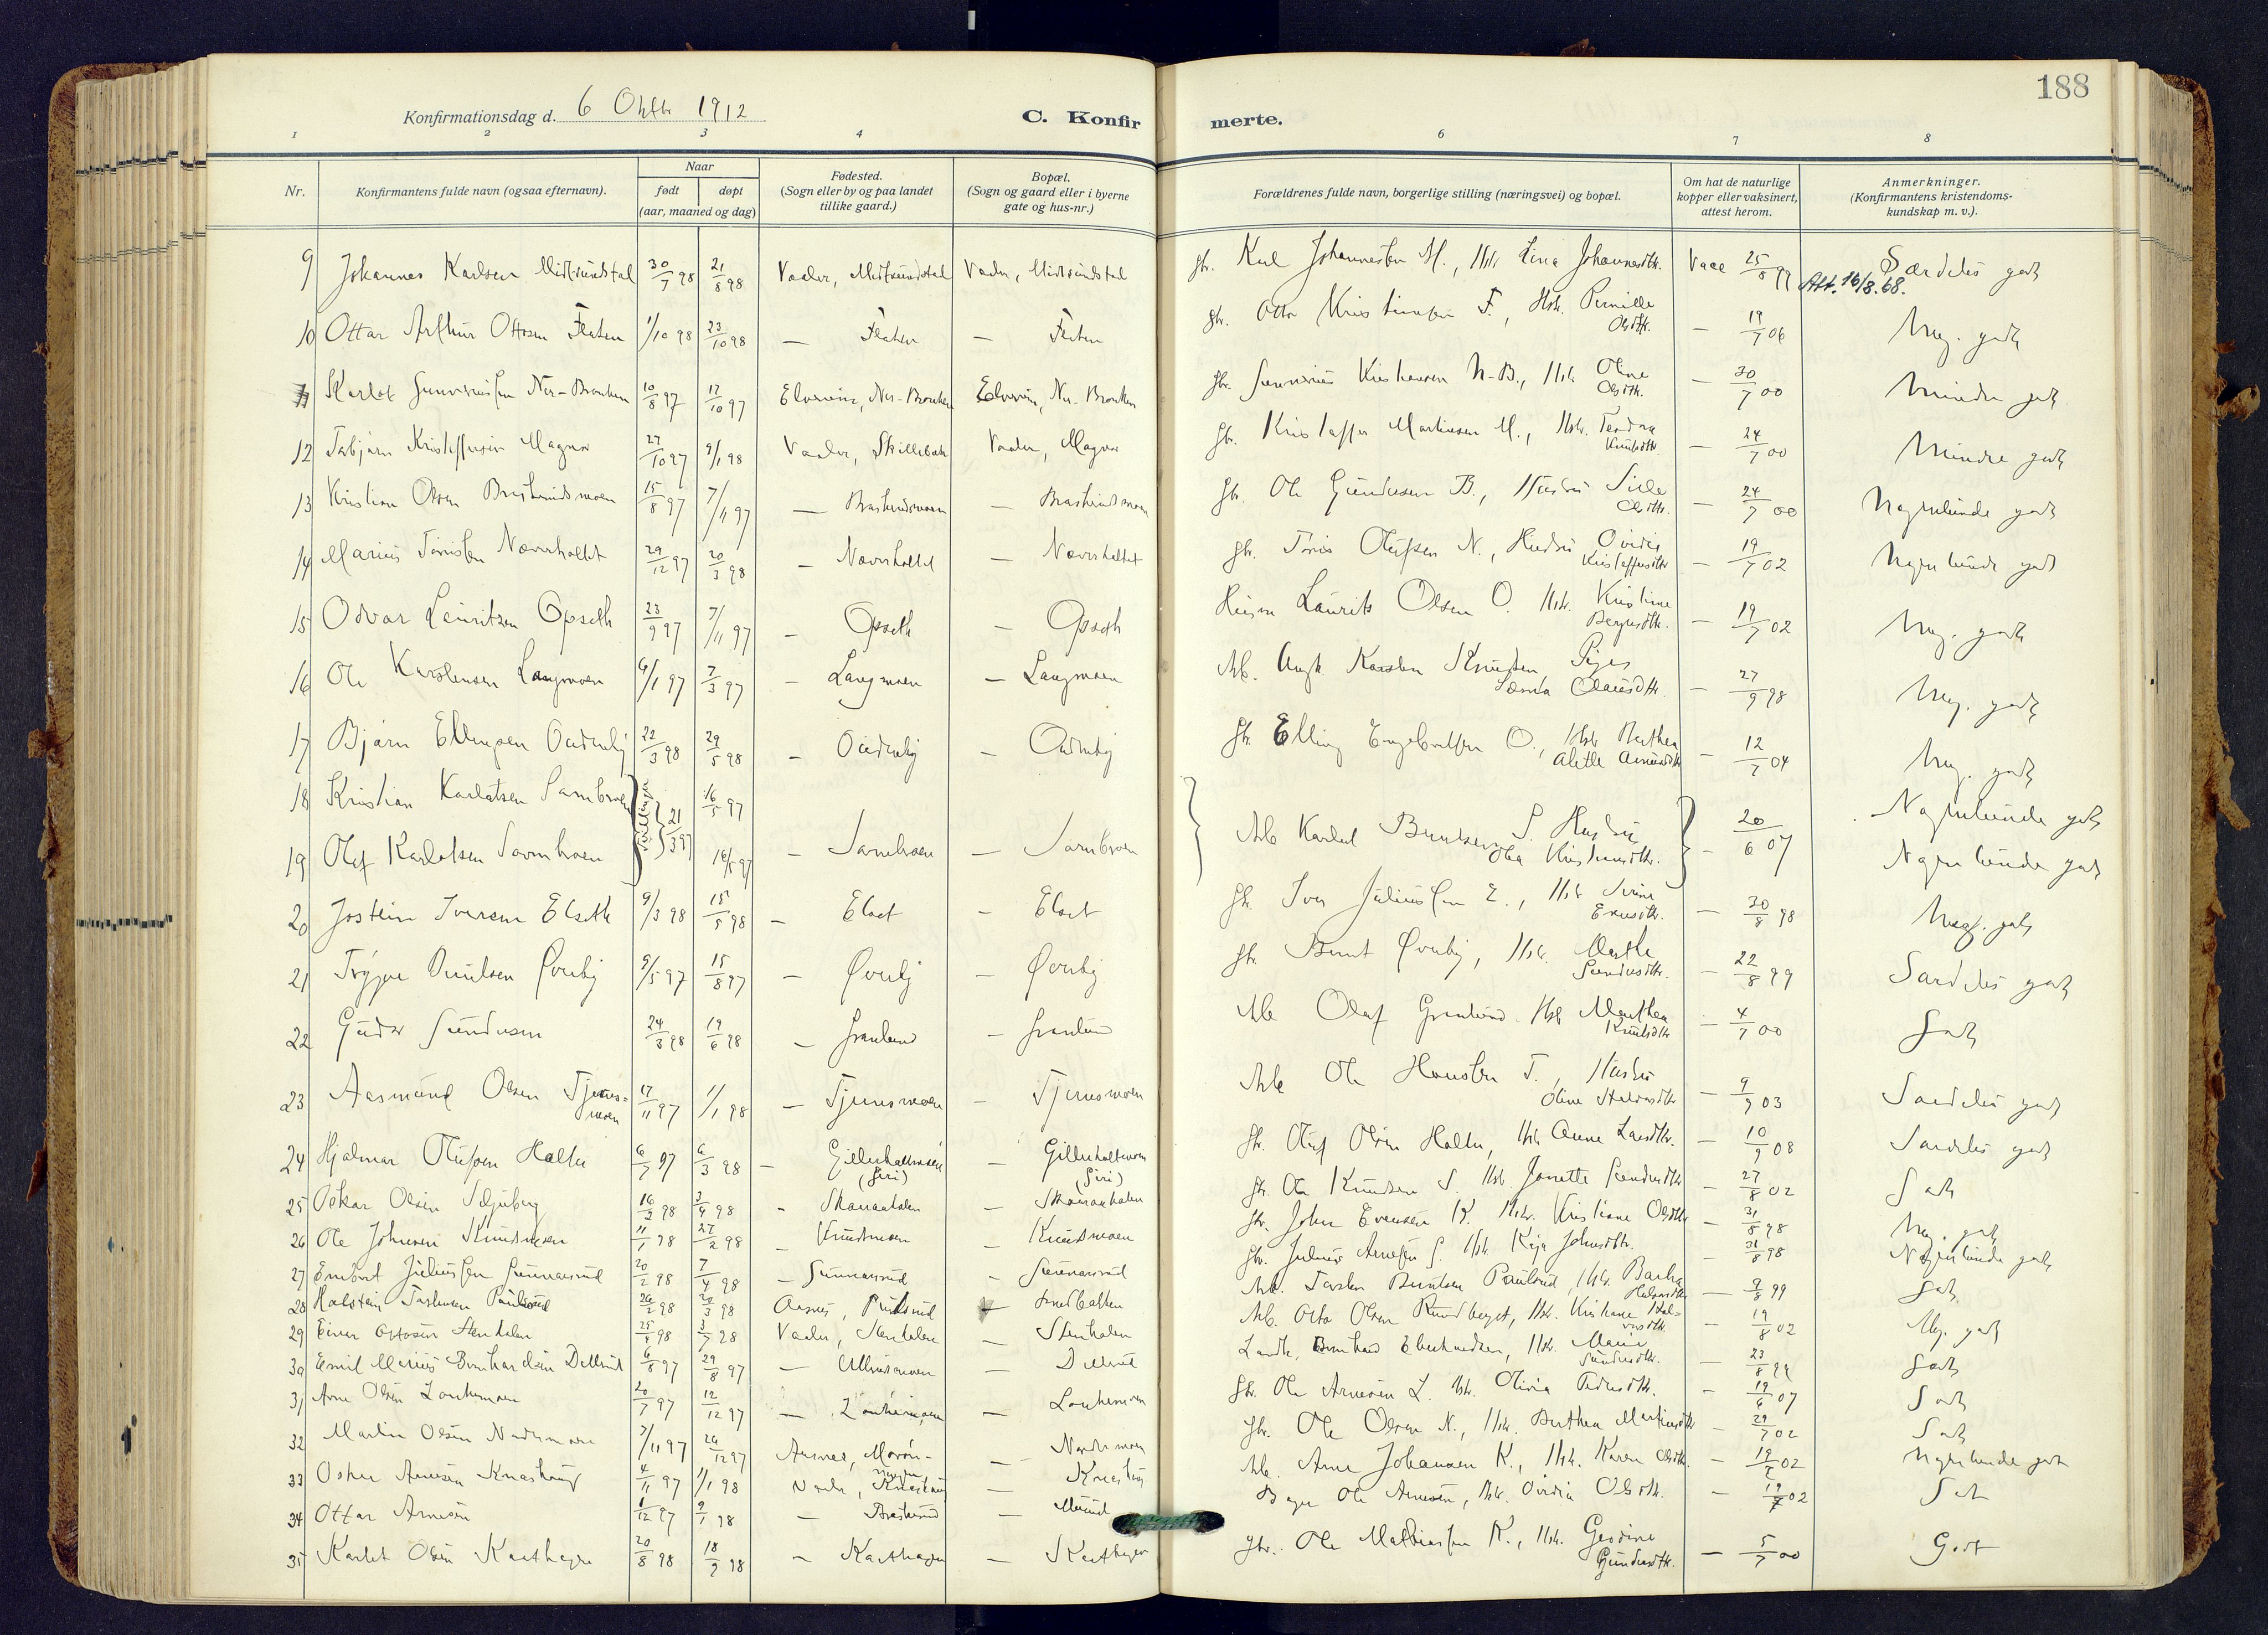 188
Konfirmationsdag d. 6 Oktbr 1912
C. Konfirmerte.
1 2 3 4 6 7 8
Nr.
Konfirmantens fulde navn (ogsaa efternavn).
Naar
født døpt
(aar, maaned og dag)
Fødested.
(Sogn eller by og paa landet
tillike gaard.)
Bopæl.
(Sogn og gaard eller i byerne
gate og hus-nr.)
Forældrenes fulde navn, borgerlige stilling (næringsvei) og bopæl.
Om hat de naturlige
kopper eller vaksinert,
attest herom.
Anmerkninger.
(Konfirmantens kristendoms-
kundskap m. v.).
9 Johannes Karlsen Midtsundstad 30/7 98 21/8 98 Vaaler, Midtsundstad Vaaler, Midtsundstad Karl Johannessen M., Hstr. Lina Johannesdtr. Vacc 25/8 99 Særdeles godt
Att. 16/8.68.
10 Ottar Arthur Ottosen Flaten 1/10 98 23/10 98 — Flaten — Flaten Gbr. Otto Kristiansen F., Hstr. Pernille Olsdtr. — 19/7 06 Meg. godt
11 Karlot Gunneriussen Ner-Brenken 10/8 97 17/10 97 Elverum, Ner-Brenken Elverum, Ner-Brenken Kristiansen N-B., Hstr. Oline Olsdtr. — 30/7 00 Mindre godt
12 Torbjørn Kristoffersen Magnor 27/10 97 9/1 98 Vaaler, Skillebæk Vaaler, Magnor Gbr. Kristoffer Martinsen M., Hstr. Knudsdtr. — 24/7 00 Mindre godt
13 Kristian Olsen Braskerudsmoen 15/8 97 7/11 97 — Braskerudsmoen — Braskerudsmoen Gbr. Ole Gundersen B., Hustru Olsdtr. — 24/7 00 Nogenlunde godt
14 Marius Tørrissen Næverholtet 29/12 97 20/3 98 — Næverholtet — Næverholtet Gbr. Tørris Olufsen N., Hustru Ovidia Kristoffersdtr — 19/7 02 Nogenlunde godt
15 Odvar Lauritzen Opseth 23/9 97 7/11 97 — Opseth — Opseth Husm Laurits Olsen O. Hstr. Kristine Bergersdtr. — 19/7 02 Meg. godt
16 Ole Karstensen Langmoen 6/1 97 7/3 97 — Langmoen — Langmoen Arb. Ungk. Karsten Knudsen Pige Olausdtr — 27/9 98 Meg. godt
17 Bjarne Ellingsen Oudenby 22/3 98 29/5 98 — Oudenby — Oudenby Gbr. Elling Engebretsen O., Hstr. Berthea Alette Amundsdtr — 12/7 04 Meg. godt
18 Kristian Karlotsen Sørnbroen 21/3 97 16/5 97 Nogenlunde godt
19 Olaf Karlotsen Sørnbroen 16/5 97 — Sørnbroen — Sørnbroen Arb Karlot Berntsen S. Hustru Oba Kristiansdtr. — 20/6 07 Nogenlunde godt
20 Jostein Iversen Elseth 9/3 98 15/5 98 — Elset — Elset Gbr. Iver Juliussen E., Hstr Evensdtr. — 30/8 98 Meget godt
21 Trygve Berntsen Øverby 9/5 97 15/8 97 — Øverby — Øverby Gbr. Bernt Øverby, Hstr. Marthe Gundersdtr. — 22/8 99 Særdeles godt
22 Gudor Gundersen 24/3 98 19/6 98 — Granlund — Granlund Arb Olaf Granlund Hstr Marthea Knudsdtr — 4/7 00 Godt
23 Aasmund Olsen Tjernsmoen 17/11 97 1/1 98 — Tjernsmoen — Tjernsmoen Arb Ole Hansen T., Hustru Oline Halvorsdtr — 9/9 03 Særdeles godt
24 Hjalmar Olufsen Holter 6/7 97 6/3 98 — Gillerholtmoen (Siri) — Gillerholtmoen (Siri) Gbr. Oluf Olsen Holter, Hstr. Anne Larsdtr. — 10/9 08 Særdeles godt
25 Oskar Olsen Seljeberg 16/2 98 3/4 98 — — Gbr. Ole Knudsen S. Hstr. Janette Gundersdtr — 27/8 02 Godt
26 Ole Johnsen Knudsmoen 11/1 98 27/2 98 — Knudsmoen — Knudsmoen Gbr. John Evensen K. Hstr. Kristiane Olsdtr — 31/8 98 Meg. godt
27 Embret Juliussen Gunnarsrud 20/2 98 7/4 98 — Gunnarsrud — Gunnarsrud Gbr. Julius Arnesen G. Hstr. Kaja Johnsdtr. — 31/8 98 Nogenlunde godt
28 Halstein Torstensen Paulsrud 26/2 98 20/3 98 Aasnes, Paulsrud — Arb. Torsten Berntsen Paulsrud, Hstr. Halvorsdtr — 9/8 99 Godt
29 Einar Ottosen Stenhalen 3/7 98 Vaaler, Stenhalen — Stenhalen Arb. Otto Olsen Rundberget, Hstr. Kristiane Halvorsdtr. — 19/8 02 Mg. godt
30 Emil Marius Bernhardsen Dellerud 6/8 97 29/8 97 — — Dellerud Landh. Bernhard Eberhardsen, Hstr. Marie Gundersdtr. — 23/8 99 Godt
31 Arne Olsen Lonkemoen 20/7 97 12/12 97 — Lonkemoen — Lonkemoen Gbr. Ole Arnesen L. Hstr. Olivia Pedersdtr. — 19/6 07 Godt
32 Martin Olsen Nordermoen 7/11 97 26/12 97 Aasnes, — Nordermoen Gbr. Ole Olsen N., Hstr. Berthea Martinsdtr — 29/7 02 Godt
33 Oskar Arnesen Knashaug 4/11 97 1/1 98 Vaaler, Knashaug — Knashaug Arb. Arne Johansen K., Hstr. Karen Olsdtr. — 19/7 02 Nogenlunde godt
34 Ottar Arnesen 1/12 97 9/1 98 — Braskerud — Ole Arnesen, Hstr. Ovidia Olsdtr. — 19/7 02 Godt
35 Karlot Olsen Kasthagen 20/8 98 18/9 98 — Kasthagen — Kasthagen Gbr. Ole Mathiassen K., Hstr. Gundersdtr. — 5/7 00 Godt